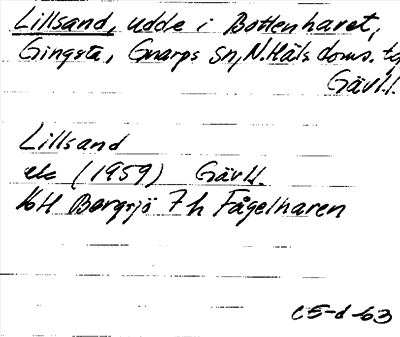 Lillsand, udde i Bottenhavet,
Gingsta, Gnarps sn, N. Häls. doms. tg
Gävl.l.
Lillsand
ek (1959) Gävll.
KH Bergsjö 7 h Fågelharen
c5-d-63